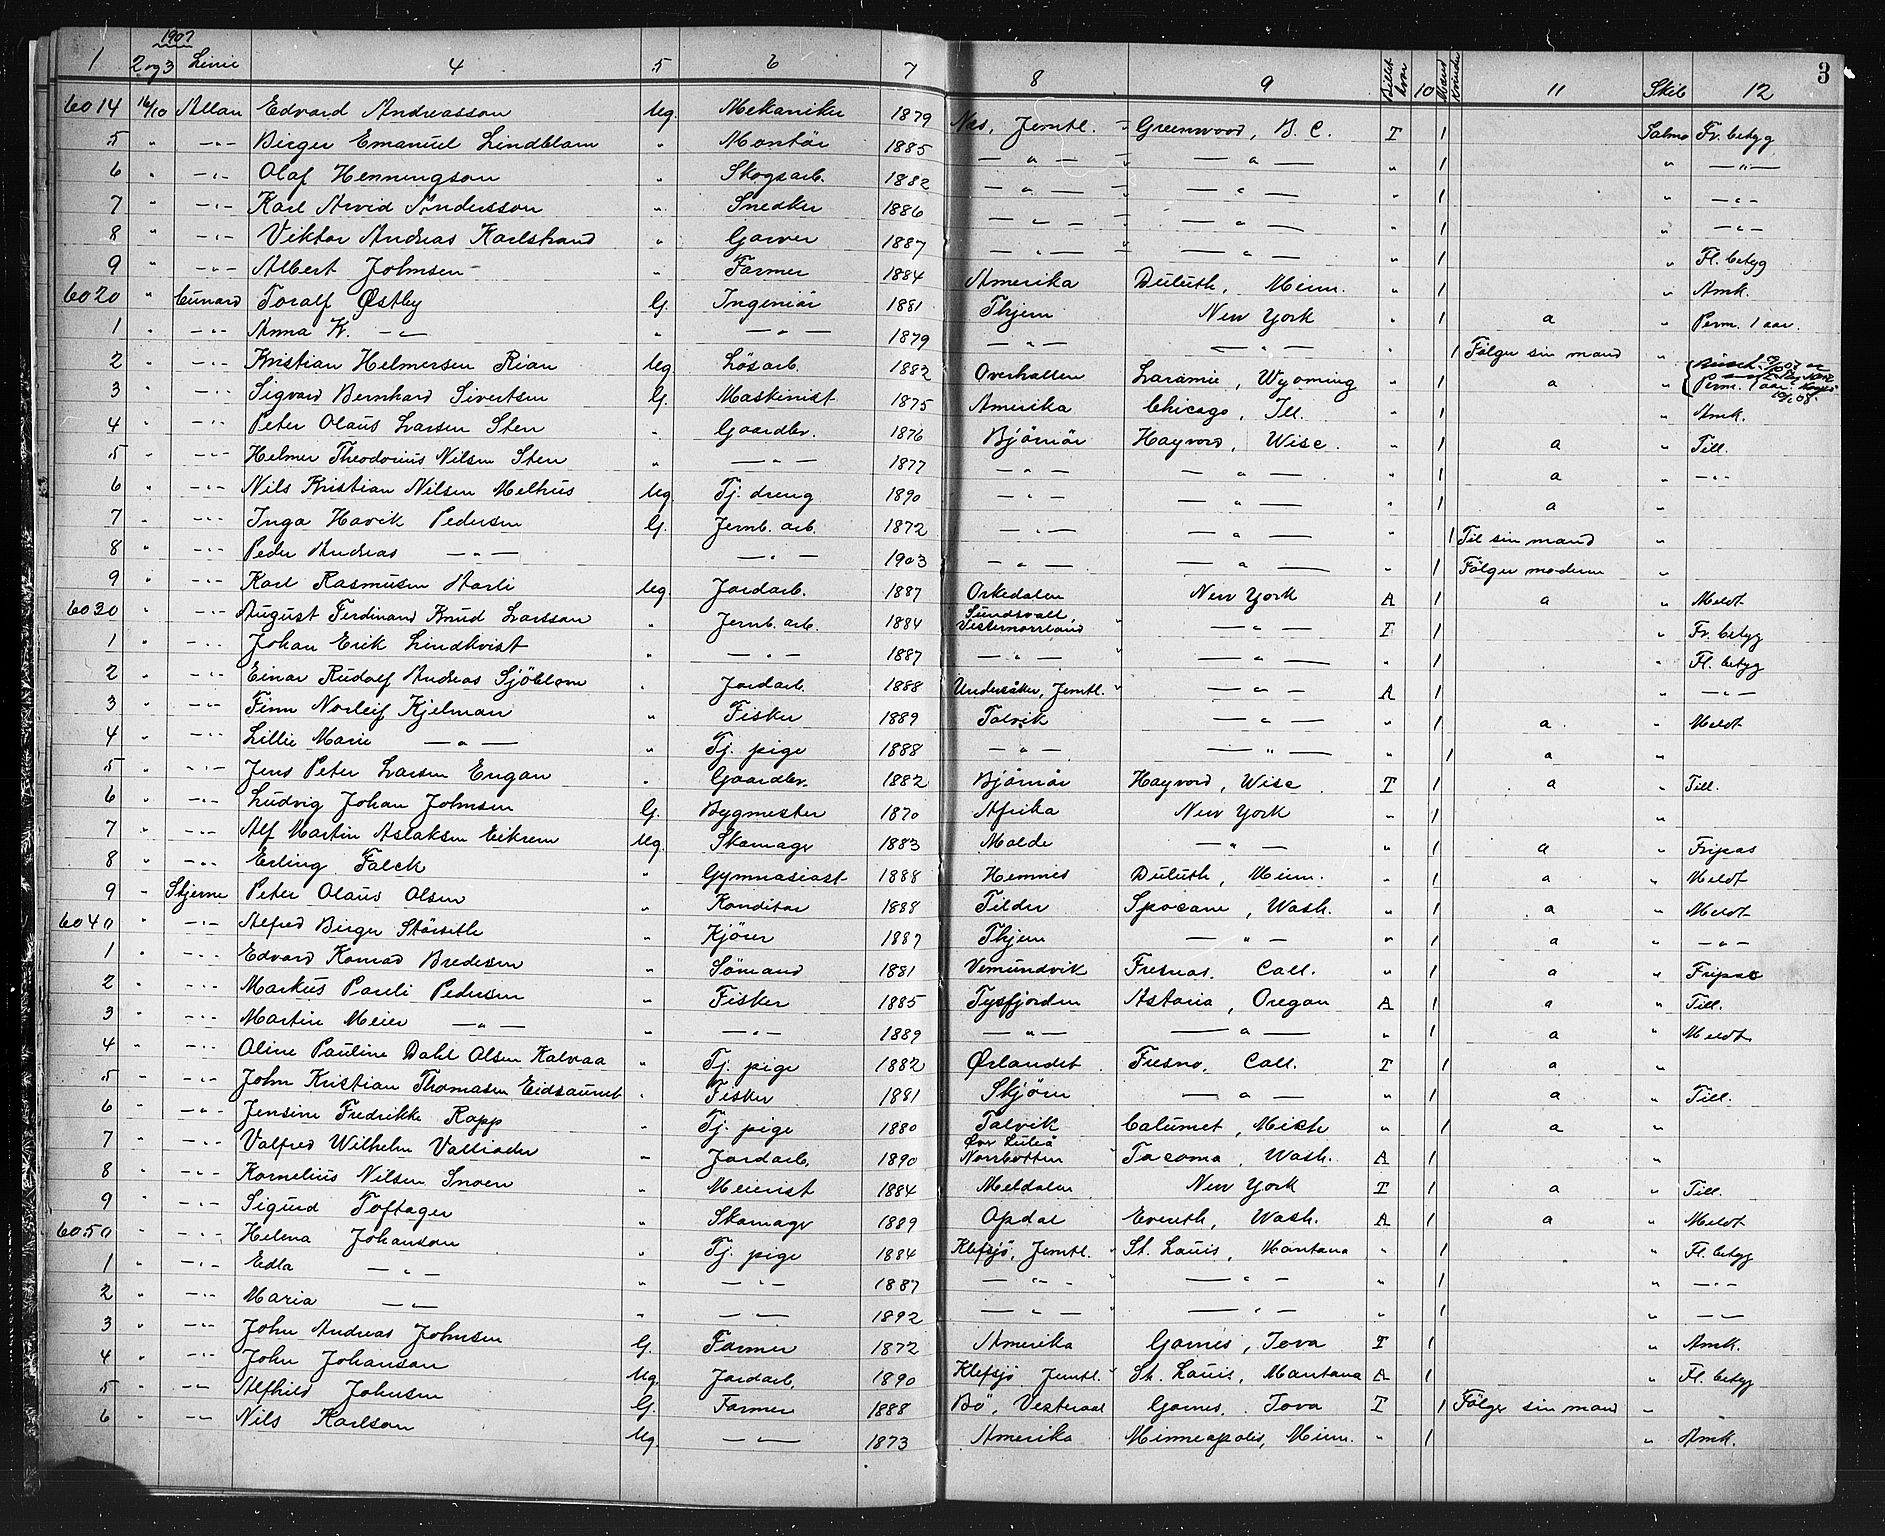 1907
1 2 og 3 Linie 4 5 6 7 8 9 Billet hvor 10 Mand Kvinder 11 Skib 12 3
6014 16/10 Allan Edvard Andreasson Ug. Mekaniker 1879 Näs, Jemtl. " Greenwood, B. C. T 1 Salmo Fr. betyg
5 " —"— Birger Emanuel Lindblom " Montör 1885 —"— " —"— " 1 " —"—
6 " —"— Olaf Henningson " Skogsarb. 1882 —"— " —"— " 1 " —"—
7 " —"— Karl Arvid Andersson " Snedker 1886 —"— " —"— " 1 " —"—
8 " —"— Viktor Andreas Karlstrand " Garver 1887 —"— " —"— " 1 " Fl. betyg
9 " —"— Albert Johnsen " Farmer 1884 Amerika Duluth, Minn. " 1 " Amk.
6020 " Cunard Toralf Østby G. Ingeniör 1881 Thjem New York " 1 a " Perm. 1 aar.
1 " —"— Anna K. —"— " —"— 1879 —"— —"— " 1 Fölger sin mand "
2 " —"— Kristian Helmersen Rian Ug. Lösarb. 1882 Overhallen Laramie, Wyoming " 1 a " Perm. 1 aar.
3 " —"— Sigvard Bernhard Sivertsen G. Maskinist 1875 Amerika Chicago, Ill. " 1 " Amk.
4 " —"— Peter Olaus Larsen Sten " Gaardbr. 1876 Bjørnør Hayvord, Wisc. " 1 a " Till.
5 " —"— Helmer Theodorius Nilsen Sten " —"— 1877 —"— —"— " 1 a " —"—
6 " —"— Nils Kristian Nilsen Melhus Ug. Tj. dreng 1890 —"— —"— " 1 a "
7 " —"— Inga Havik Pedersen G. Jernb. arb. 1872 —"— —"— " 1 Til sin mand "
8 " —"— Peder Andreas —"— —"— 1903 —"— —"— " 1 Fölger moderen "
9 " —"— Karl Rasmusen Aarli Ug. Jordarb. 1887 Orkedalen New York A 1 a " Meldt
6030 " —"— August Ferdinand Knud Larsson " Jernb. arb. 1884 Sundsvall, Vesternorrland " —"— T 1 " Fr. betyg
1 " —"— Johan Erik Lindkvist " —"— 1887 —"— " —"— " 1 " Fl. betyg
2 " —"— Einar Rudolf Andreas Sjöblom " Jordarb. 1888 Undersåker, Jemtl. " —"— A 1 " —"—
3 " —"— Finn Norleif Kjelman " Fisker 1889 Talvik —"— " 1 a " Meldt
4 " —"— Lillie Marie —"— " Tj. pige 1888 —"— —"— " 1 a "
5 " —"— Jens Peter Larsen Engan " Gaardbr. 1882 Bjørnør Hayvord, Wisc. T 1 a " Till.
6 " —"— Ludvig Johan Johnsen G. Bygmester 1870 Afrika New York " 1 "
7 " —"— Alf Martin Aslaksen Eikrem Ug. Skomager 1883 Molde —"— " 1 a " Fripas
8 " —"— Erling Falck " Gymnasiast 1888 Hemnes Duluth, Minn. " 1 a " Meldt
9 " Stjerne Peter Olaus Olsen " Konditor 1888 Tilder Spocane, Wash. " 1 a " Meldt
6040 " —"— Alfred Birger Störseth " Kjörer 1887 Thjem —"— " 1 a " —"—
1 " —"— Edvard Konrad Bredesen " Sömand 1881 Vemundvik Fresnas, Call. " 1 a " Fripas
2 " —"— Markus Pauli Pedersen " Fisker 1885 Tysfjorden Astoria, Oregon A 1 a " Till.
3 " —"— Martin Meier —"— " —"— 1889 —"— —"— " 1 a " Meldt
4 " —"— Oline Pauline Dahl Olsen Kalvaa " Tj. pige 1882 Ørlandet Fresno, Call. T 1 a "
5 " —"— John Kristian Thomasen Eidsaunet " Fisker 1881 Skjörn —"— " 1 a " Till.
6 " —"— Jensine Fredrikke Rapp " Tj. pige 1880 Talvik Calumet, Mich " 1 a "
7 " —"— Valfred Wilhelm Valliader " Jordarb. 1890 Över Luleå Norrbotten " Tacoma, Wash. A 1 "
8 " —"— Kornelius Nilsen Snoen " Meierist 1884 Meldalen New York T 1 a " Till.
9 " —"— Sigurd Toftager " Skomager 1889 Opdal Evereth, Wash. A 1 a " Meldt
6050 " —"— Helena Johanson " Tj. pige 1884 Klefsjö, Jemtl. " St. Louis, Montana " 1 " Fl. betyg
1 " —"— Edla —"— " —"— 1887 —"— " —"— " 1 " —"—
2 " —"— Maria —"— " —"— 1892 —"— —"— " 1 " —"—
3 " —"— John Andreas Johnsen G. Farmer 1872 Amerika Gornes, Iova T 1 " Amk.
4 " —"— John Johanson Ug. Jordarb. 1890 Klefsjö Jemtl. " St. Louis, Montana A 1 " Fl. betyg
5 " —"— Alfhild Johnsen G. Farmer 1888 Bö, Vesteraal Gornes, Iova T 1 Fölger sin mand "
6 " —"— Nils Karlson Ug. —"— 1873 Amerika Minneapolis, Minn. " 1 " Amk.